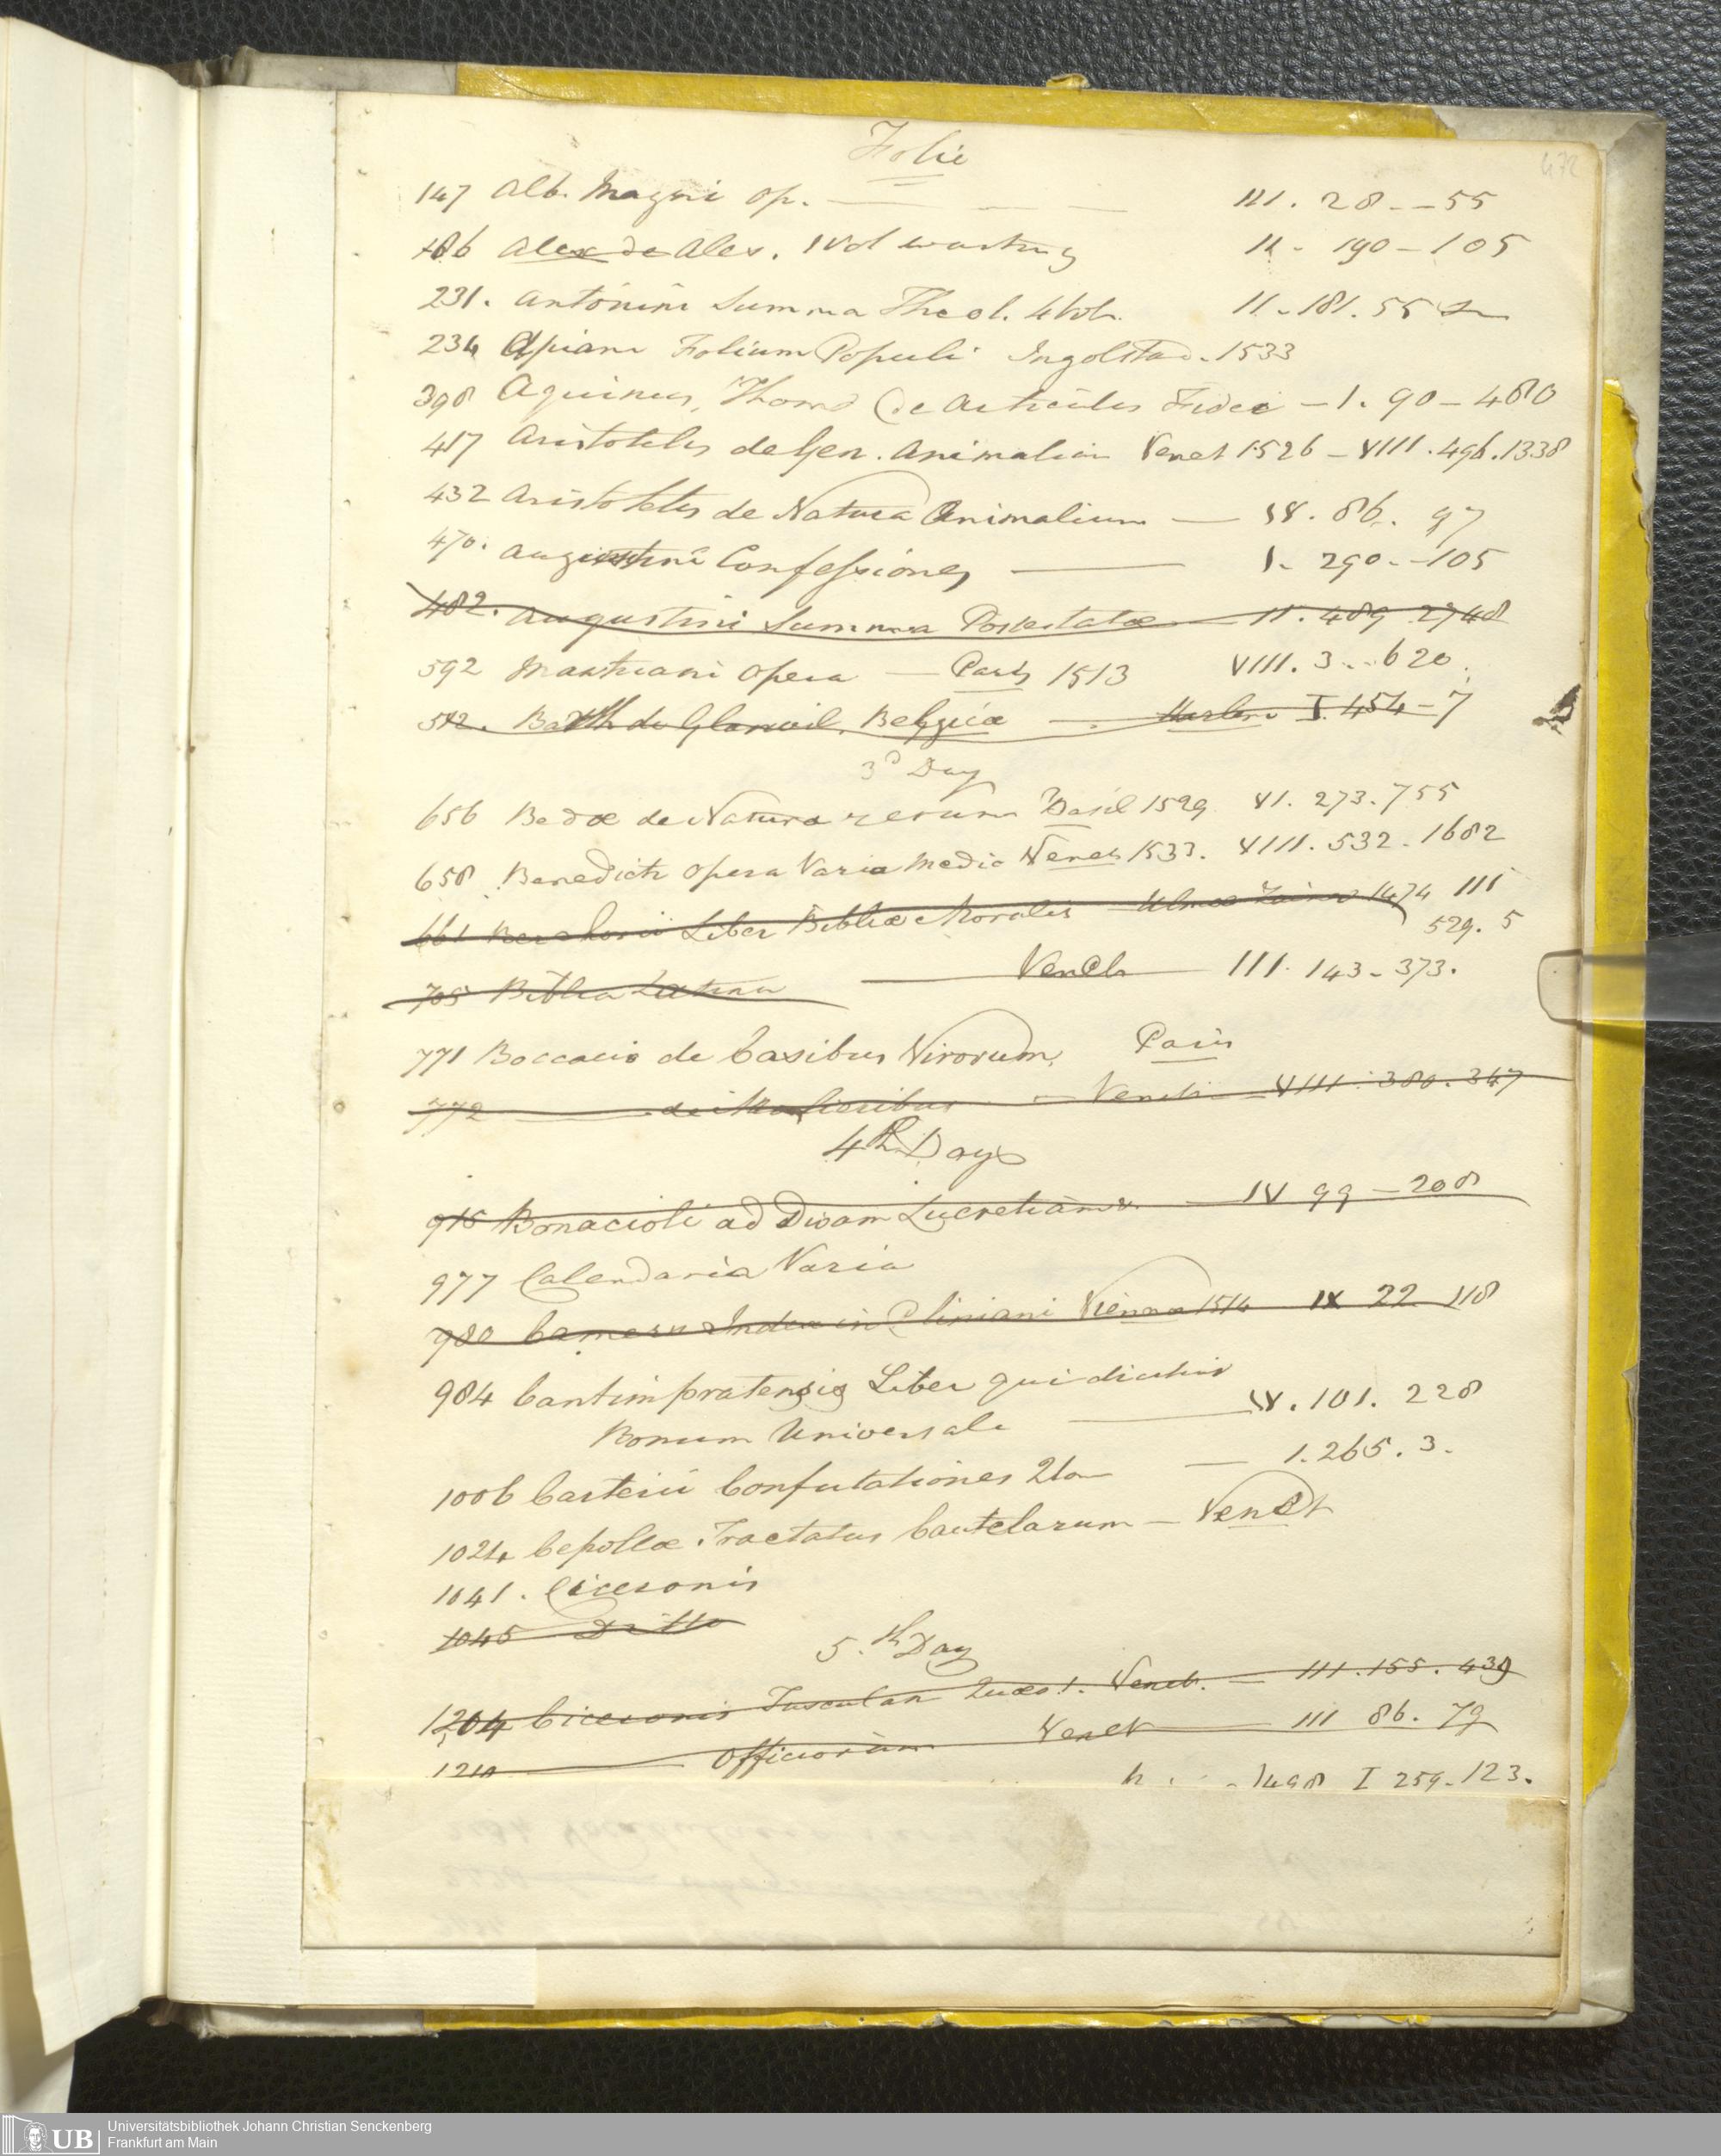 Folio
472
147 Alb. Magni Op. — — — III. 28 - - 55
486 Alex de Ales. 1 vol wanting II - 190 - 105
231. Antonini Summa Theol. 4 vols. II - 181. 55
234 Apiani Folium Populi Ingolstad. 1533
398 Aquinus, Thoms de Articulis Fidei - 1. 90 - 480
417 Aristotelis de Gen. Animalium Venet 1526 - VIII. 496. 1338
432 Aristoteles de Natura Animalium — IV. 86. 97
470. Augustini Confessiones — I - 290. - 105
482. Augustini Summa II. 489 2748
592 Opera — Paris 1513 VIII. 3 . . 620.
512. Barth de Glanvil. Belgicæ — Harlem I. 454 - 7
3d Day
656 Bedæ de Natura rerum Basil 1529 VI. 273. 755
658 Benedicti Opera Varia Medic Venet 1533. VIII. 532. 1682
661 Berchorii Liber Bibliæ Moralis — Ulmæ Zainer 1474 III
529. 5
705 Biblia Latina — Venet — III. 143 - 373.
771 Boccacio de Casibus Virorum, Paris
772 — de Mulieribus — Venet — VIII. 380. 347
4th Day
915 Bonacioli ad Divam Lucretiam — IV 99 - 208
977 Calendaria Varia
980 Camers Index in Pliniani Vienna 1514 IX 22 118
984 Cantimpratensis Liber qui dicitur
Bonum Universale — IV. 101. 228
1006 Carterii Confutationes — 1. 265. 3.
1024 Cepollæ Tractatus Cautelarum — Venet
1041. Ciceronis
1045 Ditto
5th Day
1204 Ciceronis Tusculan Quæst. Venet. — III. 155. 439
1210 — Officiorum Venet — III 86. 79
1498 I 259 - 123.
UB
Universitätsbibliothek Johann Christian Senckenberg
Frankfurt am Main